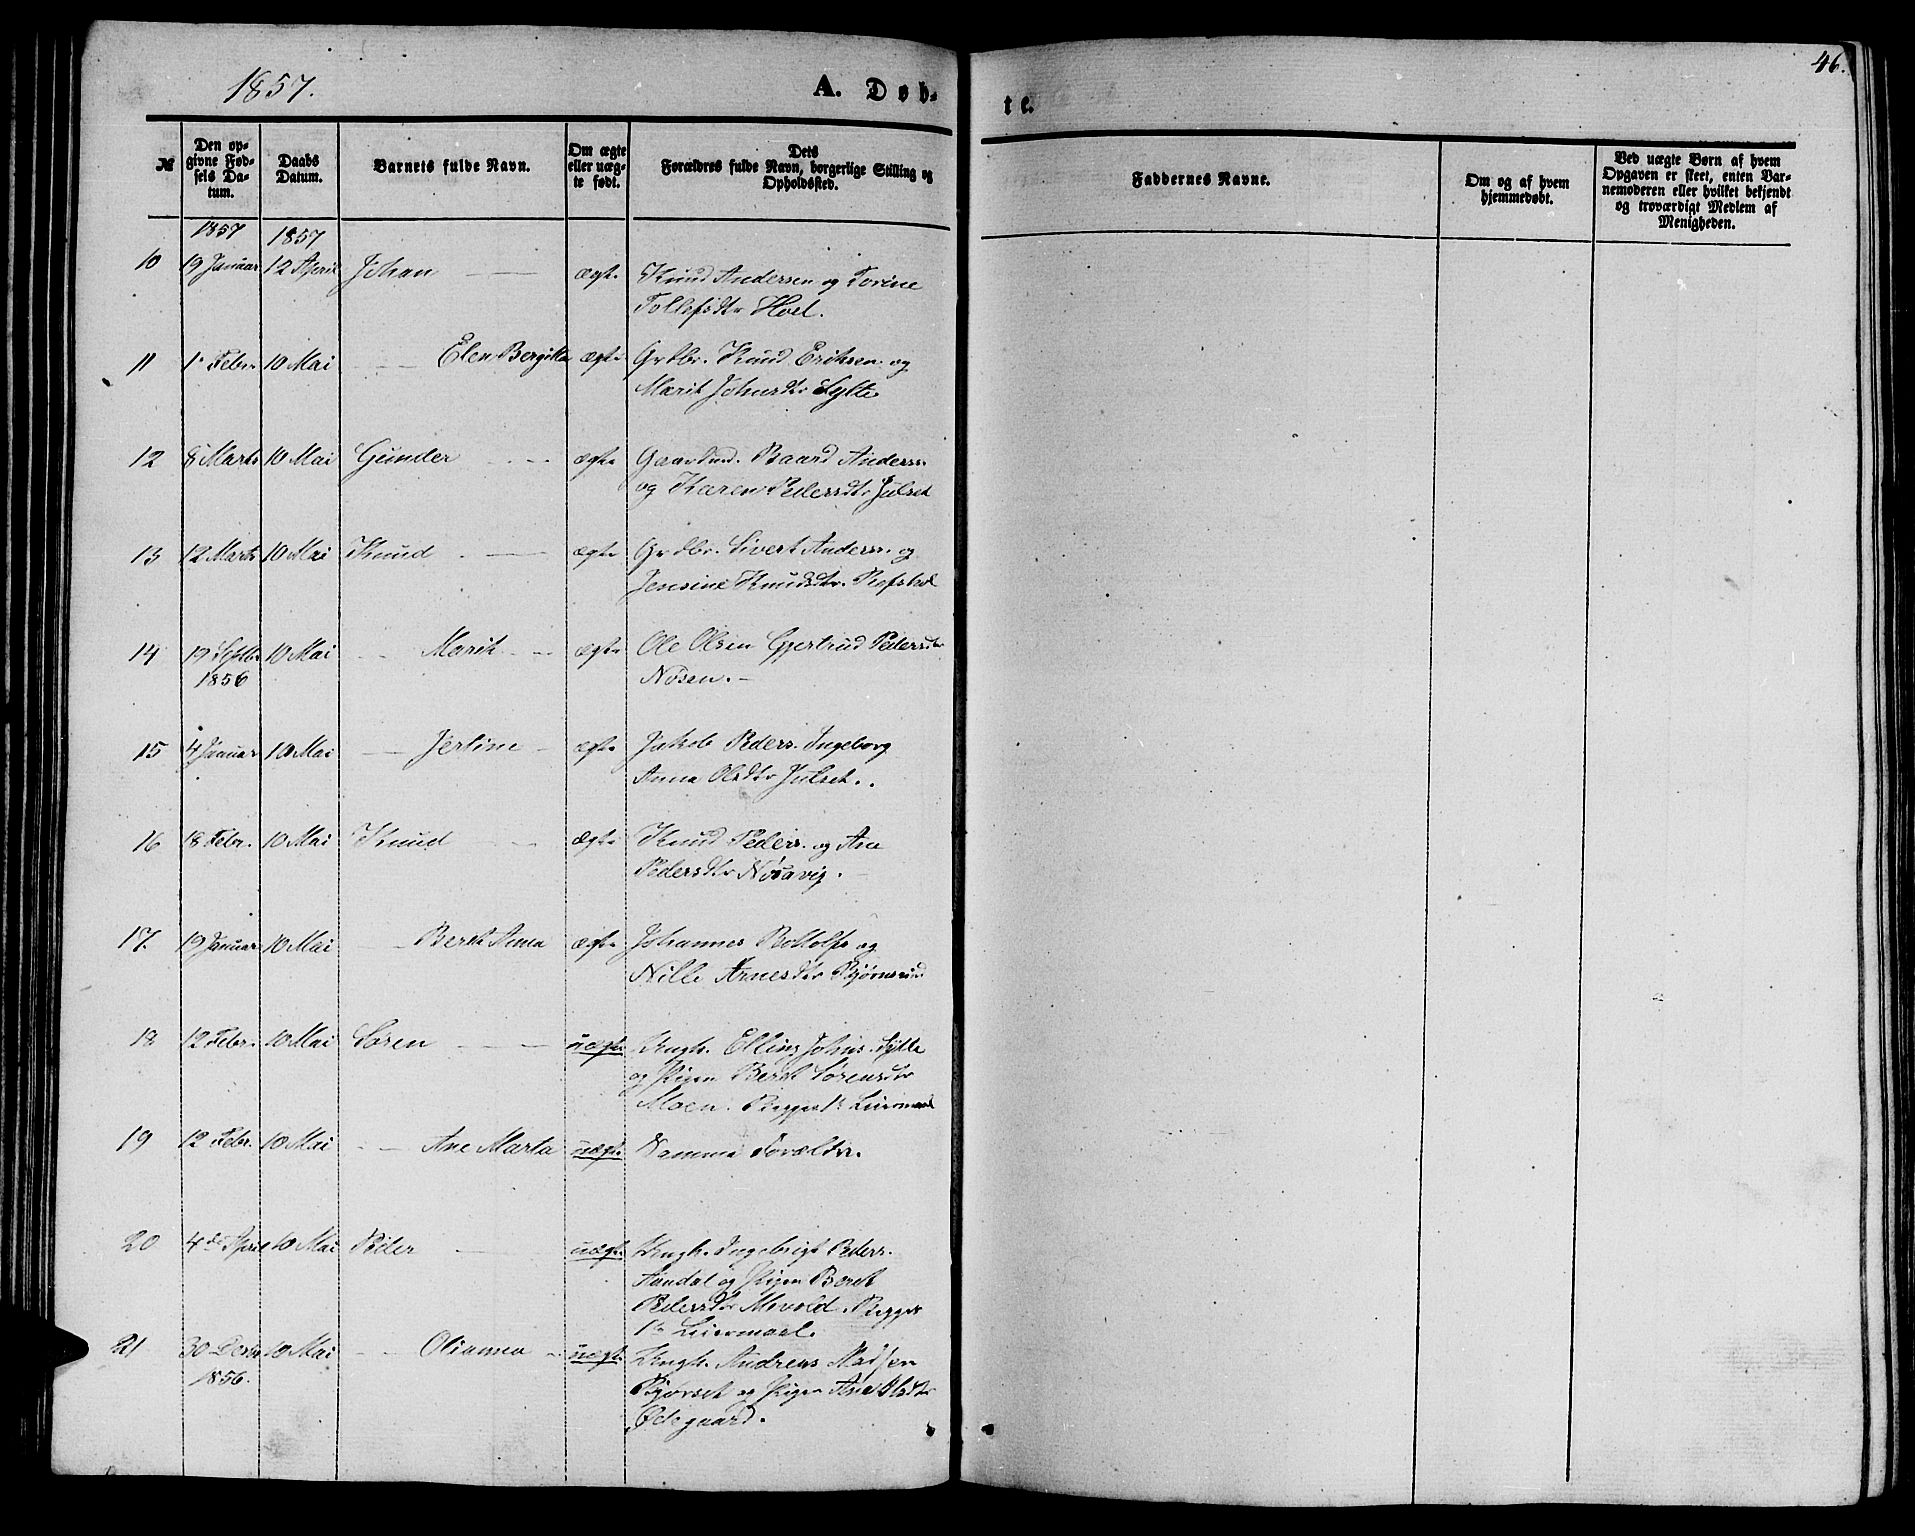 1857.
A. Døb-
te.
46.
№
Den op-
givne Fød-
sels Da-
tum.
Daabs
Datum.
Barnets fulde Navn.
Om ægte
eller uæg-
te født.
Dets
Forældres fulde Navn, borgerlige Stilling og
Opholdssted.
Faddernes Navne.
Om og af hvem
hjemmedøbt.
Ved uægte Børn af hvem
Opgaven er skeet, enten Bar-
nemoderen eller hvilket bekjendt
og troværdigt Medlem af
Menigheden.
1857 1857
10 19 Januar 12 April Johan ægte Knud Andersen og Torine
Tollefsdtr Hoel.
11 1 Febr. 10 Mai Elen Bergitta ægte Grdbr. Knud Eriksen og
Marit Johnsdtr Sylte
12 8 Marts 10 Mai Gunder ægte Gaardmd. Baard Anderss.
og Karen Pedersdtr Julset
13 12 Marts 10 Mai Knud ægte Grdbr. Sivert Anderss. og
Jensine Knudsdtr.
14 19 Septbr 10 Mai Marit ægte Ole Olsen Gjertrud Pedersdtr
1856 Nøsen.
15 4 Januar 10 Mai Jertine ægte Jakob Peders. Ingeborg
Anna Olsdtr Julset.
16 18 Febr. 10 Mai Knud ægte Knud Peders. og Ane
Pedersdtr Nøsavig.
17. 19 Januar 10 Mai Beret Anna ægte Johannes Bottolfs og
Nille Arnesdtr Bjørnsund
18 12 Febr. 10 Mai Søren uægte Ungk. Elling Johns. Sylte
og Pigen Beret Sørensdtr
Moen. Begges 1ste Leiermaal
19 12 Febr. 10 Mai Ane Marta uægte Samme Forældre.
20 4de April 10 Mai Peder uægte Ungk. Ingebrigt Peders.
og Pigen Beret
Pedersdtr Mevold. Begges
1ste Leiermaal.
21 30 Decbr 10 Mai Olianna uægte Ungk. Andreas Madsen
1856. Bjørset og Pigen Ane Olsdtr
Ødegaard.